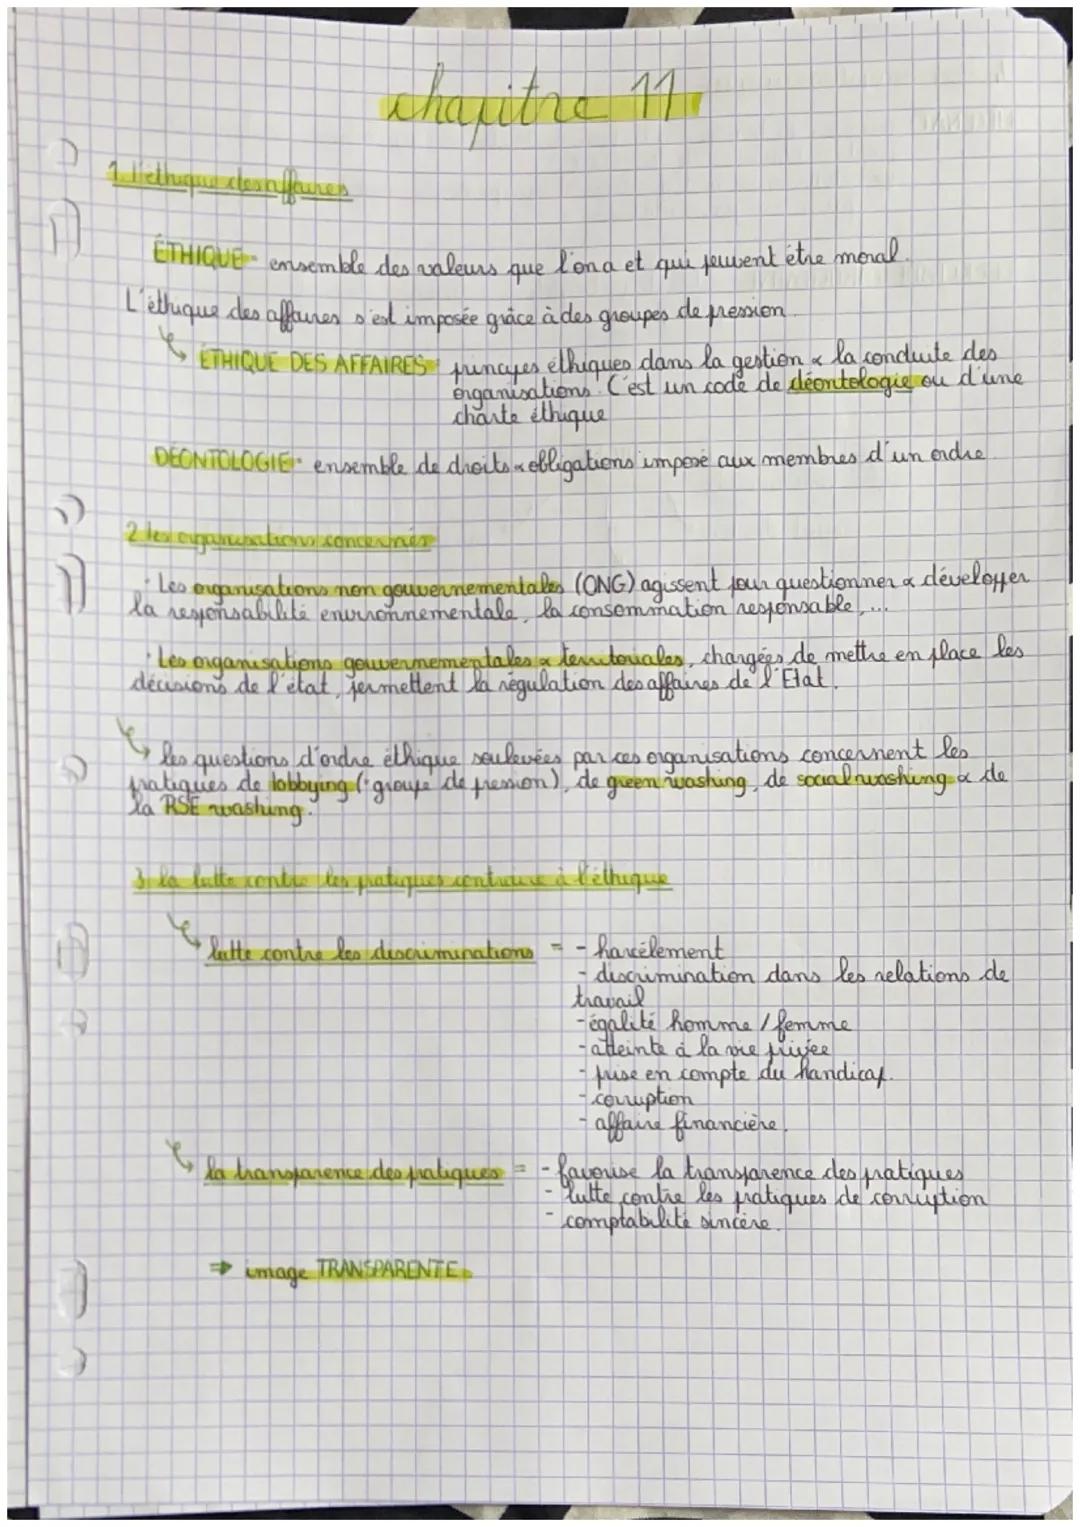 chapitre 11
1. l'éthique des affaires
ÉTHIQUE : ensemble des valeurs que l'on a et qui peuvent être moral.
L'éthique des affaires s'est imposée grâce à des groupes de pression.
ÉTHIQUE DES AFFAIRES : principes éthiques dans la gestion & la conduite des
organisations. C'est un code de déontologie ou d'une
charte éthique
DÉONTOLOGIE : ensemble de droits & obligations imposé aux membres d'un ordre.
2 les organisations concernés
· Les organisations non gouvernementales (ONG) agissent pour questionner & développer
la responsabilité environnementale, la consommation responsable, ...
· Les organisations gouvernementales & territoriales, chargées de mettre en place les
décisions de l'état, permettent la régulation des affaires de l'Etat.
les questions d'ordre éthique soulevées par ces organisations concernent les
pratiques de lobbying (: groupe de pression), de green washing, de social washing & de
la RSE washing.
3 la lutte contre les pratiques contraire à l'éthique
lutte contre les discriminations = - harcèlement
- discrimination dans les relations de
travail
- égalité homme / femme
- atteinte à la vie privée
- prise en compte du handicap.
- corruption
- affaire financière.
la transparence des pratiques = - favorise la transparence des pratiques
- lutte contre les pratiques de corruption
- comptabilité sincère.
⇒ image TRANSPARENTE